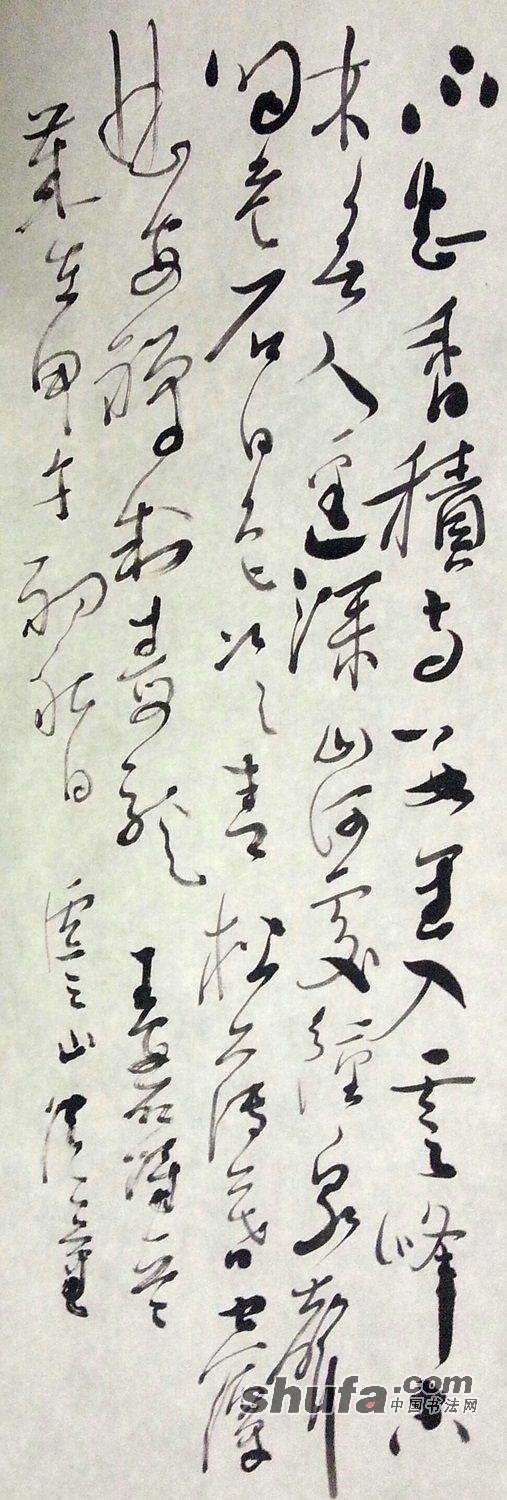 不知香積寺數里入雲峰古
木無人逕深山何處鐘泉聲
咽危石日色冷青松薄暮空潭
曲安禪制毒龍 王安石詩一首
歲在甲午初秋日 山
shufa.com
中国书法网